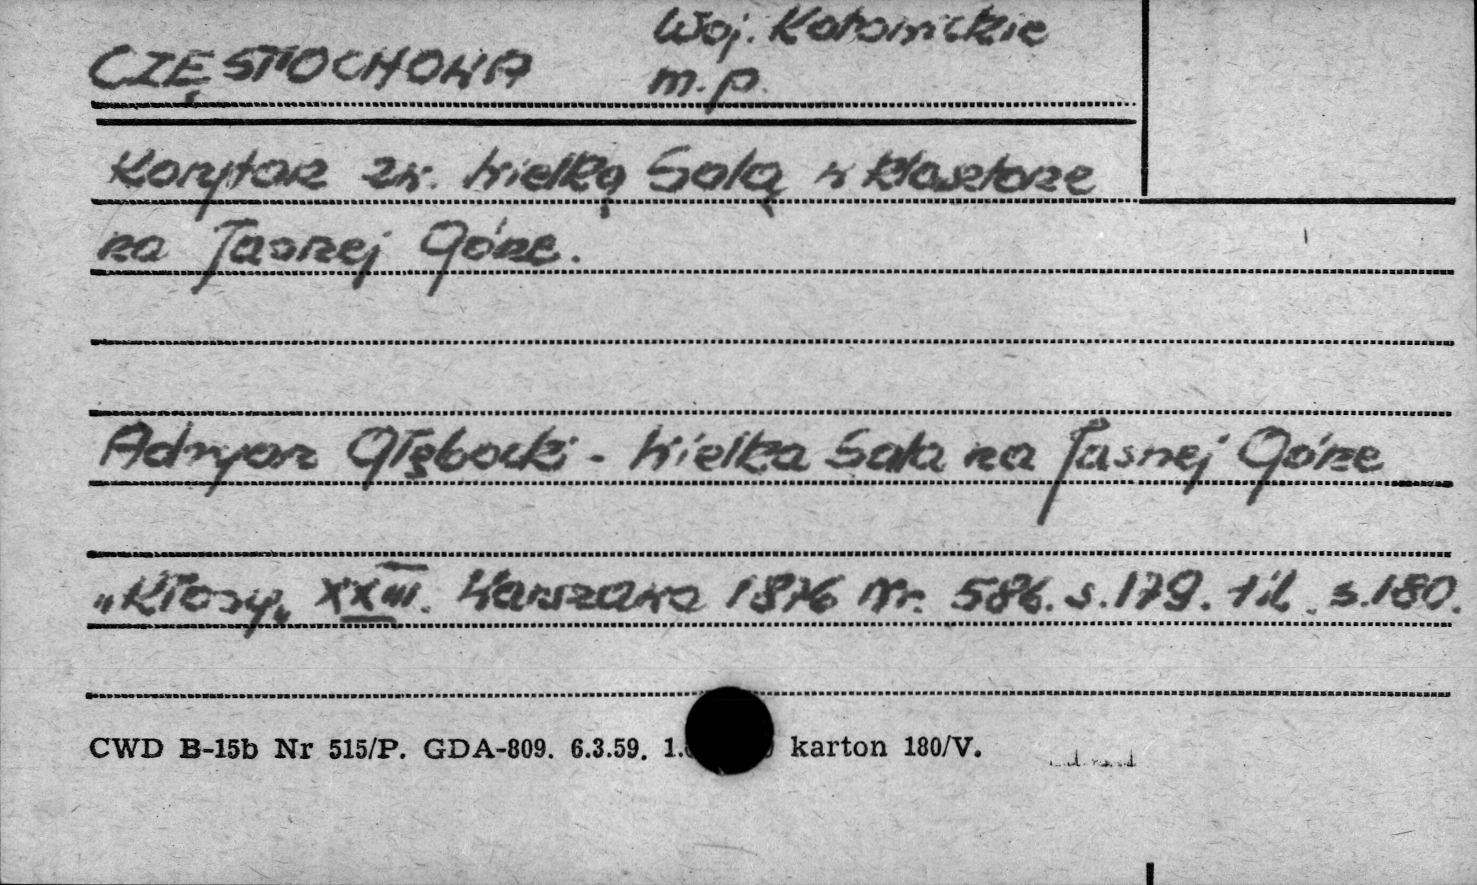 CZĘSTOCHOWA Woj. Katowickie
m.p.
Korytarz zw. Wielką Salą w klasztorze
na Jasnej Górze.
Adryan Głębocki - Wielka Sala na Jasnej Górze
"Kłosy" XXIII. Warszawa 1876 Nr. 586. s. 179. il. s. 180.
CWD B-15b Nr 515/P. GDA-809. 6.3.59. karton 180/V.